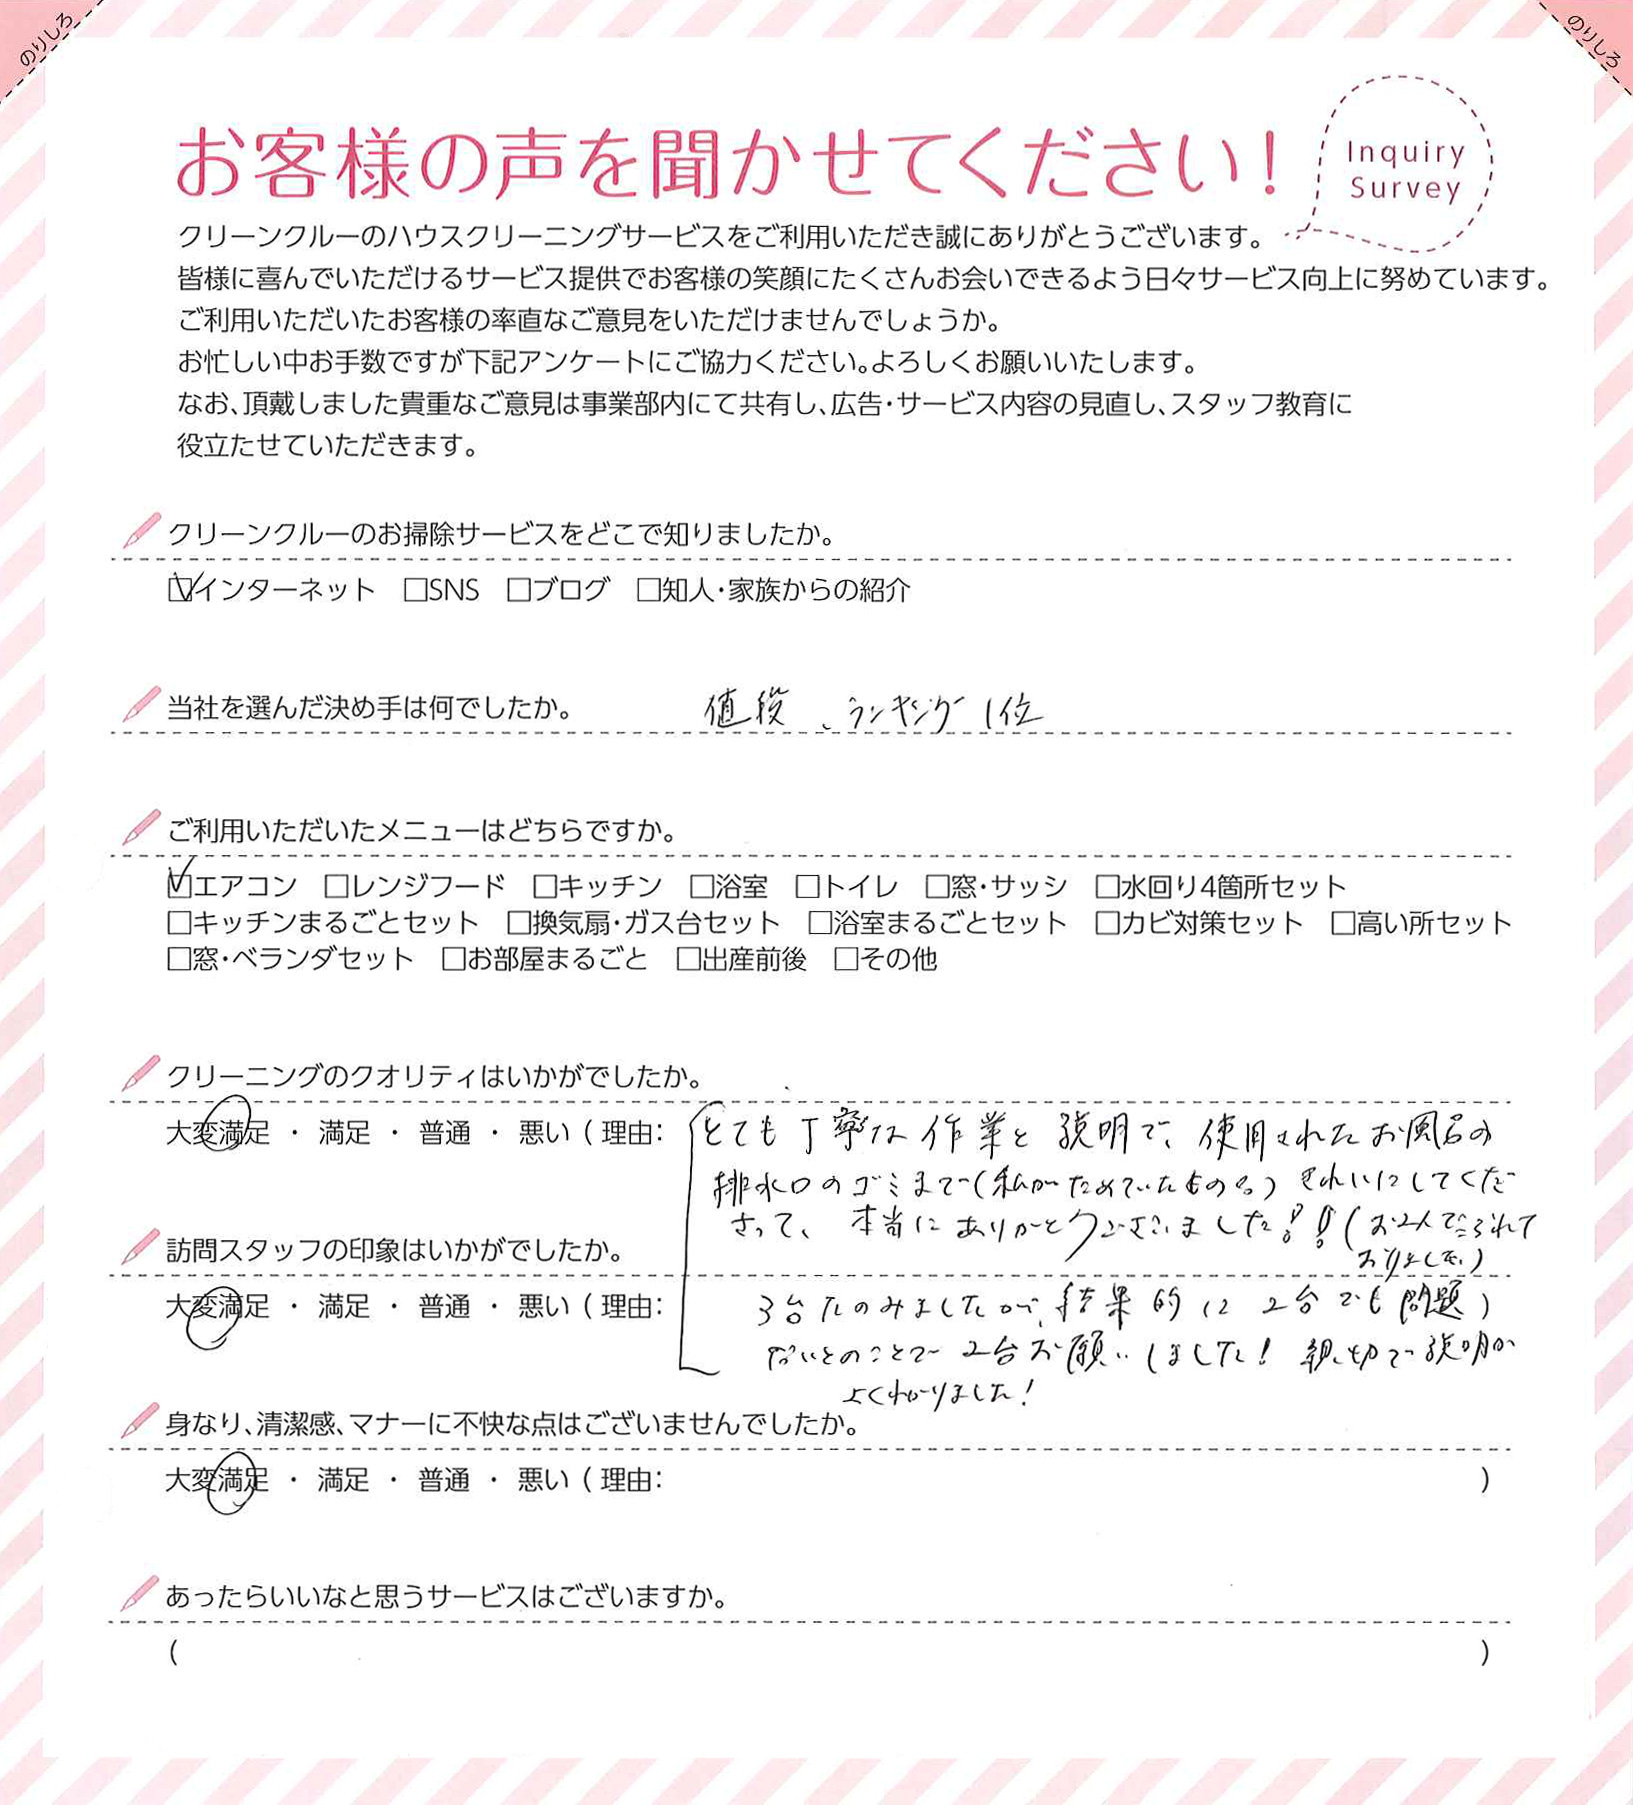 のりしろ
のりしろ
お客様の声を聞かせてください!
Inquiry
Survey
クリーンクルーのハウスクリーニングサービスをご利用いただき誠にありがとうございます。
皆様に喜んでいただけるサービス提供でお客様の笑顔にたくさんお会いできるよう日々サービス向上に努めています。
ご利用いただいたお客様の率直なご意見をいただけませんでしょうか。
お忙しい中お手数ですが下記アンケートにご協力ください。よろしくお願いいたします。
なお、頂戴しました貴重なご意見は事業部内にて共有し、広告・サービス内容の見直し、スタッフ教育に
役立たせていただきます。
クリーンクルーのお掃除サービスをどこで知りましたか。
☑インターネット □SNS □ブログ □知人・家族からの紹介
当社を選んだ決め手は何でしたか。 値段、ランキング1位
ご利用いただいたメニューはどちらですか。
☑エアコン □レンジフード □キッチン □浴室 □トイレ □窓・サッシ □水回り4箇所セット
□キッチンまるごとセット □換気扇・ガス台セット □浴室まるごとセット □カビ対策セット □高い所セット
□窓・ベランダセット □お部屋まるごと □出産前後 □その他
クリーニングのクオリティはいかがでしたか。
大変満足 ・ 満足 ・ 普通 ・ 悪い ( 理由: とても丁寧な作業と説明で、使用されたお風呂の
排水口のゴミまで(私がためていたものも) きれいにしてくだ
さって、本当にありがとうございました!!(お2人で来られて
おりました。)
訪問スタッフの印象はいかがでしたか。
大変満足 ・ 満足 ・ 普通 ・ 悪い ( 理由: 3台たのみましたが、結果的に2台でも問題 )
ないとのことで2台お願いしました! 親切で説明が
よくわかりました!
身なり、清潔感、マナーに不快な点はございませんでしたか。
大変満足 ・ 満足 ・ 普通 ・ 悪い ( 理由: )
あったらいいなと思うサービスはございますか。
( )